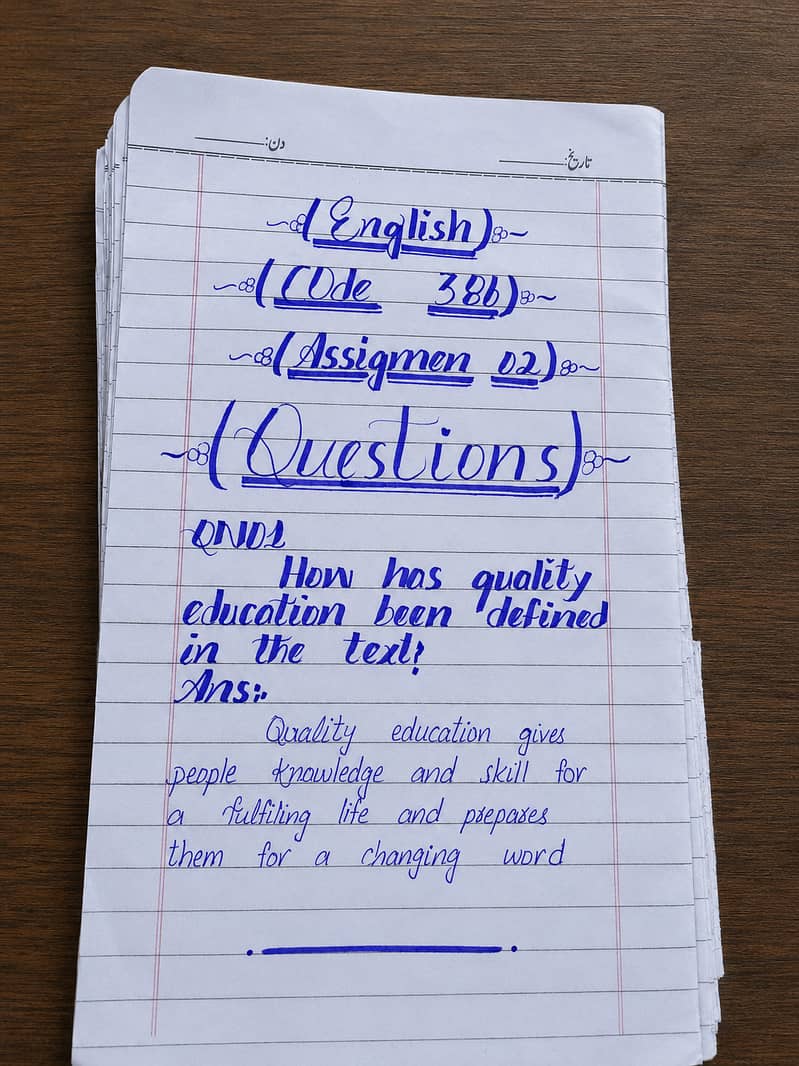 دن:
تاریخ:
(English)
(Code 386)
(Assigmen 02)
(Questions)
QN01
How has quality
education been defined
in the text?
Ans:.
Quality education gives
people knowledge and skill for
a fulfiling life and prepares
them for a changing word